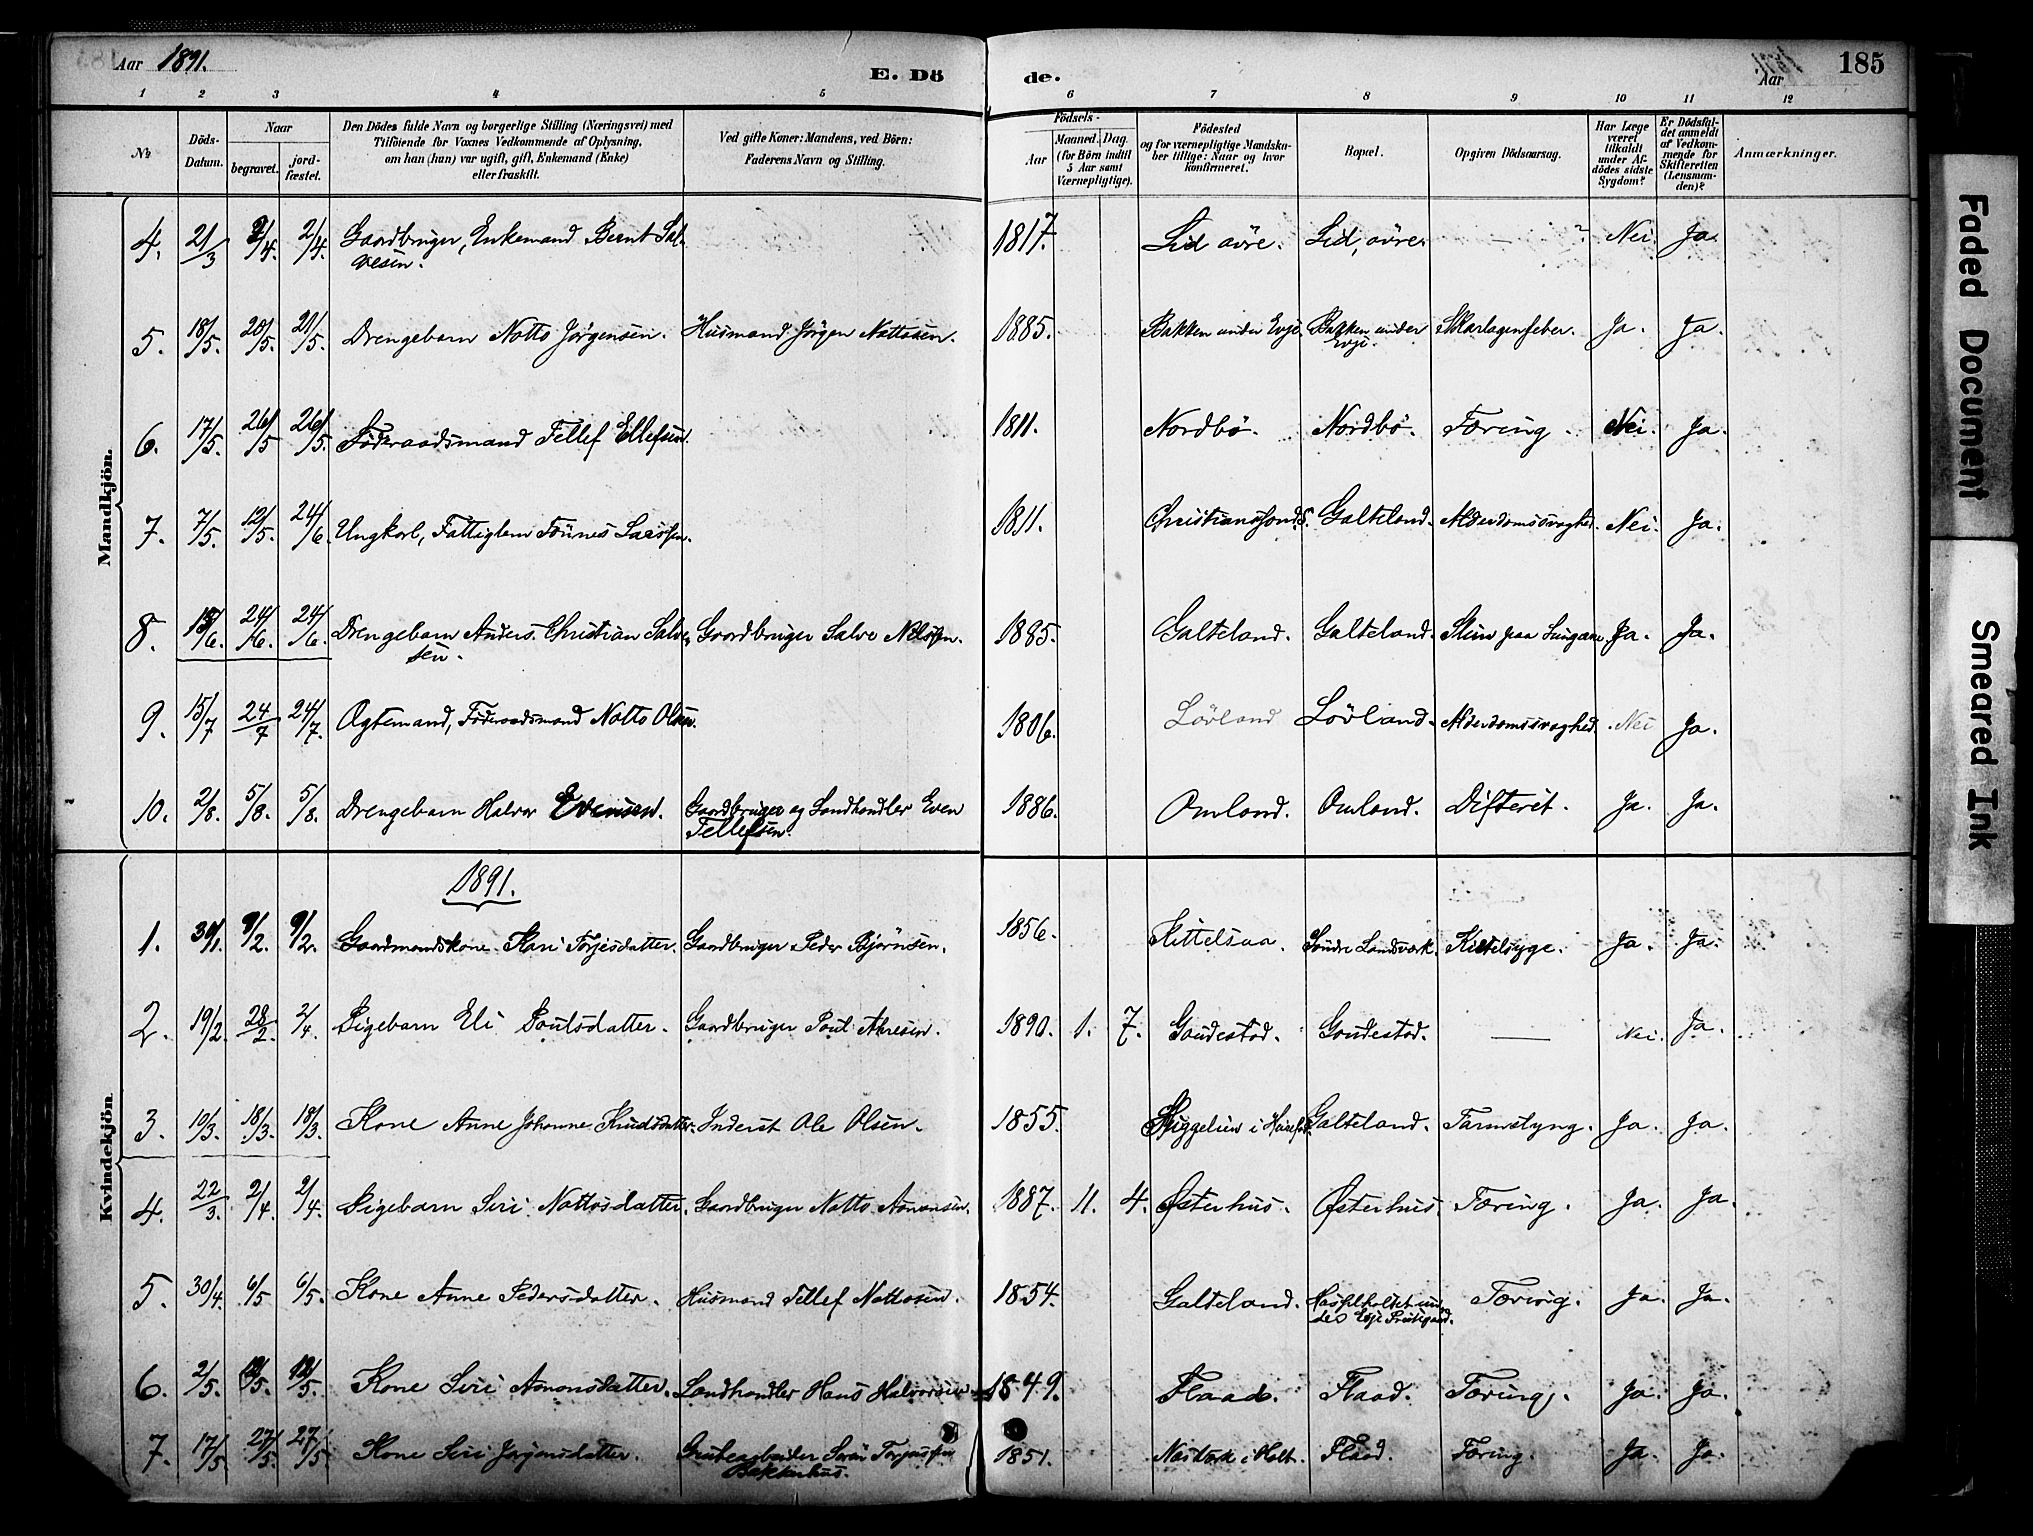 Aar 1891.
E. Dö
de.
Aar
185
1 2 3 4 5 6 7 8 9 10 11 12
No
Döds-Datum.
Naar
begravet.
jord-fæstet.
Den Dödes fulde Navn og borgerlige Stilling (Næringsvei) med
Tilföiende for Voxnes Vedkommende af Oplysning,
om han (hun) var ugift, gift, Enkemand (Enke)
eller fraskilt.
Ved gifte Koner: Mandens, ved Börn:
Faderens Navn og Stilling.
Födsels-
Aar
Maaned. Dag.
(for Börn indtil
5 Aar samt
Værnepligtige).
Födested
og for værnepligtige Mandska-
ber tillige: Naar og hvor
konfirmeret.
Bopæl.
Opgiven Dödsaarsag.
Har Læge
været
tilkaldt
under Af-
dödes sidste
Sygdom?
Er Dödsfal-
det anmeldt
af Vedkom-
mende for
Skifteretten
(Lensman-
den)?
Anmærkninger.
Mandkjön.
4. 21/3 2/4. 2/4. Gaardbruger, Enkemand Bernt Sal-
vesen. 1817. Lid övre. Lid, övre. — ? Nei. Ja.
5. 18/5. 20/5. 20/5. Drengebarn Notto Jörgensen. Husmand Jörgen Nottosen. 1885. Bakken under Evje. Bakken under
Evje. Skarlagenfeber. Ja. Ja.
6. 17/5. 26/5 26/5. Föderaadsmand Tellef Ellefsen. 1811. Nordbö. Nordbö. Tæring. Nei. Ja.
7. 7/5. 12/5. 24/6 Ungkarl, Fattiglem Tönnes Larssen. 1811. Christianssand S. Galteland. Alderdomssvaghed. Nei. Ja.
8. 15/6. 24/6. 24/6. Drengebarn Anders Christian Salve-
sen. Gaardbruger Salve Nilssen. 1885. Galteland. Galteland. Slim paa Lungene. Ja. Ja.
9. 15/7 24/7 24/7. Ægtemand, Föderaadsmand Notto Olsen. 1806. Lövland Lövland. Alderdomssvaghed. Nei Ja.
10. 2/8. 5/8. 5/8. Drengebarn Halvor Evensen. Gaardbruger og Landhandler Even
Tellefsen. 1886. Omland. Omland. Difterit. Ja. Ja.
Kvindekjön.
1891.
1. 30/1. 9/2. 9/2. Gaardmandskone Kari Torjesdatter. Gaardbruger Peder Bjørnsen. 1856. Kittelsaa. Söndre Landsværk. Ja. Ja.
2. 19/2. 28/2. 2/4. Pigebarn Eli Poulsdatter. Gaardbruger Poul Aanesen. 1890. 1. 7. Gaudestad. Gaudestad. — Nei. Ja.
3. 10/3. 18/3. 18/3. Kone Anne Johanne Knudsdatter. Inderst Ole Olsen. 1855. Galteland. Tarmslyng. Ja. Ja.
4. 22/3. 2/4. 2/4. Pigebarn Siri Nottosdatter. Gaardbruger Notto Aanonsen. 1887. 11. 4. Østerhus. Østerhus. Tæring. Ja. Ja.
5. 30/4. 6/5 6/5. Kone Anne Pedersdatter. Husmand Tellef Nottosen. 1854. Galteland. Tæring. Ja. Ja.
6. 2/5. 12/5. 12/5. Kone Siri Aanonsdatter. Landhandler Hans Halvorsen 1849. Flaad. Flaad. Tæring. Ja. Ja.
7. 17/5 27/5. 27/5 Kone Siri Jørgensdatter. Grubearbeider Søren Torjussen
Bakkenhus. 1851. Næsværk i Holt. Flaad. Tæring. Ja. Ja.
Faded Document
Smeared Ink